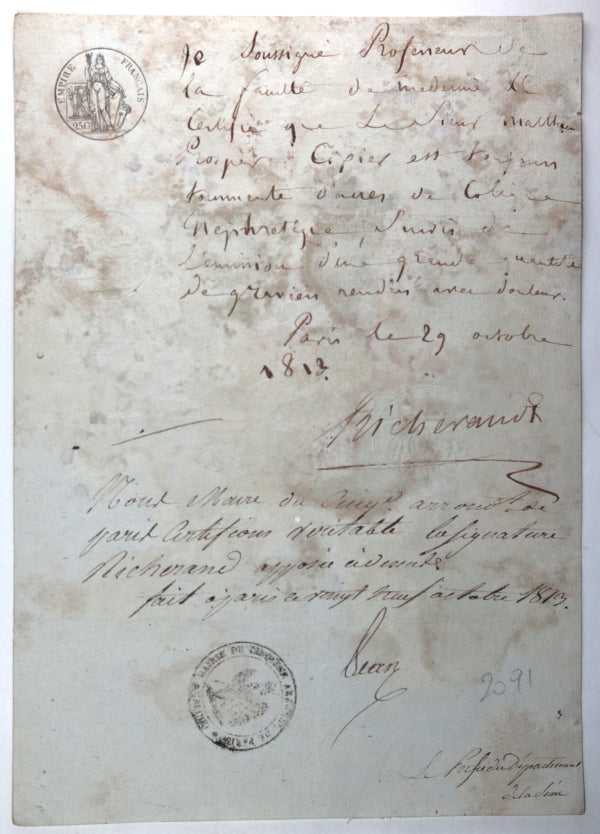 EMPIRE FRANÇAIS
25C
Je Soussigné Professeur de
La faculté de medecine &C
Certifie que Le Sieur Matthieu
Prosper Cipier est toujours
tourmenté de Colique
Nephretique Suivis de
L'emission d'une grande quantité
de graviers rendus avec douleur.
Paris le 29 octobre
1813.
Richerand
Nous Maire du Cinq.e arrond.t de
paris Certifions veritable la signature
Richerand apposée cidessus
fait a paris ce vingt neuf octobre 1813.
MAIRIE DU CINQUIEME ARRONDt. DE PARIS
2091
Le Préfet du Département
de la Seine